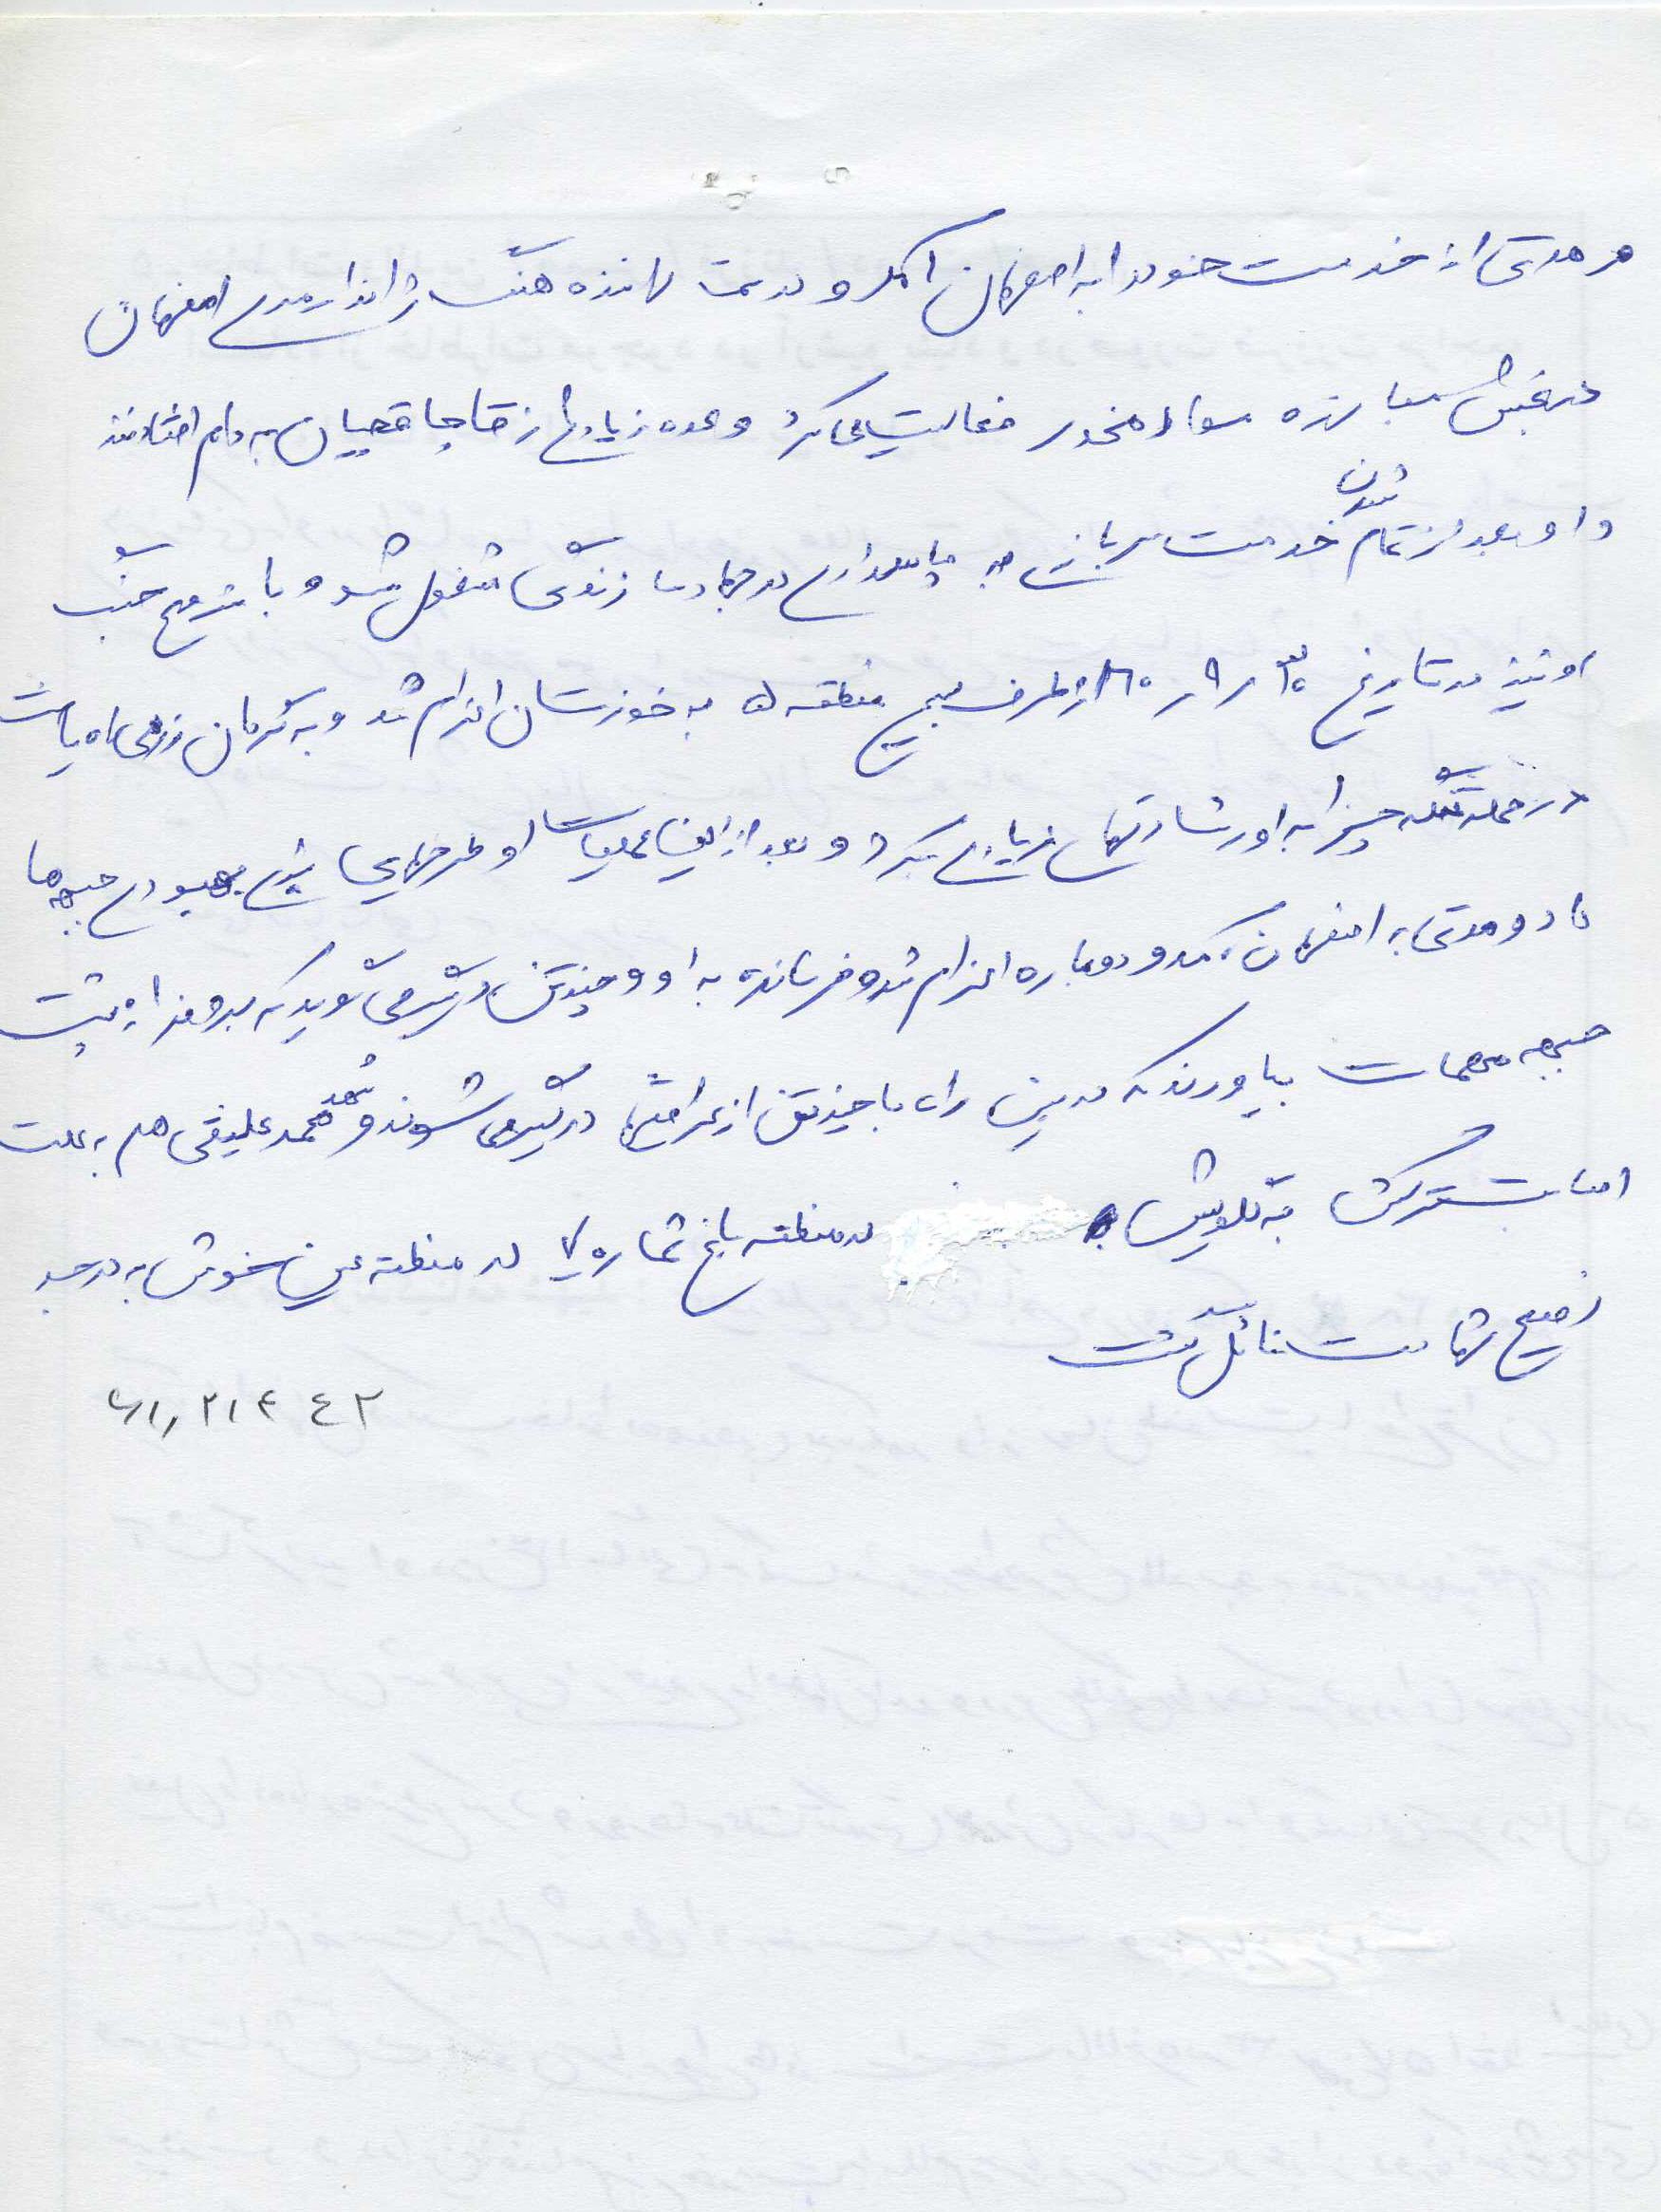 و مدتی از خدمت خود را به اصفهان آمد و در سمت راننده هنگ ژاندارمری اصفهان
در بخش مبارزه با مواد مخدر فعالیت می کرد و عده زیادی از قاچاقچیان به دام انداختند
و او بعد از تمام شدن خدمت سربازی به پاسداری در جهاد سازندگی مشغول شد و با شروع جنگ
او نیز در تاریخ ۶۰/۹/۳۰ از طرف بسیج منطقه ۵ به خوزستان اعزام شد و به فرمان
در حمله تنگه چزابه او رشادتهای زیادی کرد و بعد از این عملیات او طرحهایی برای بهبودی جبهه ها
داد و مدتی به اصفهان آمد و دوباره اعزام شد و فرمانده به او و چند تن دیگر می گوید که بروند از پشت
جبهه مهمات بیاورند که در بین راه با چند تن از عراقیها درگیر می شوند و شهید محمد علیقی هم به علت
اصابت ترکش به گلویش در منطقه پاسخ شماره ۷ در منطقه عین خوش به درجه
رفیع شهادت نائل گشت
۶۱,۲۱۴۴۲